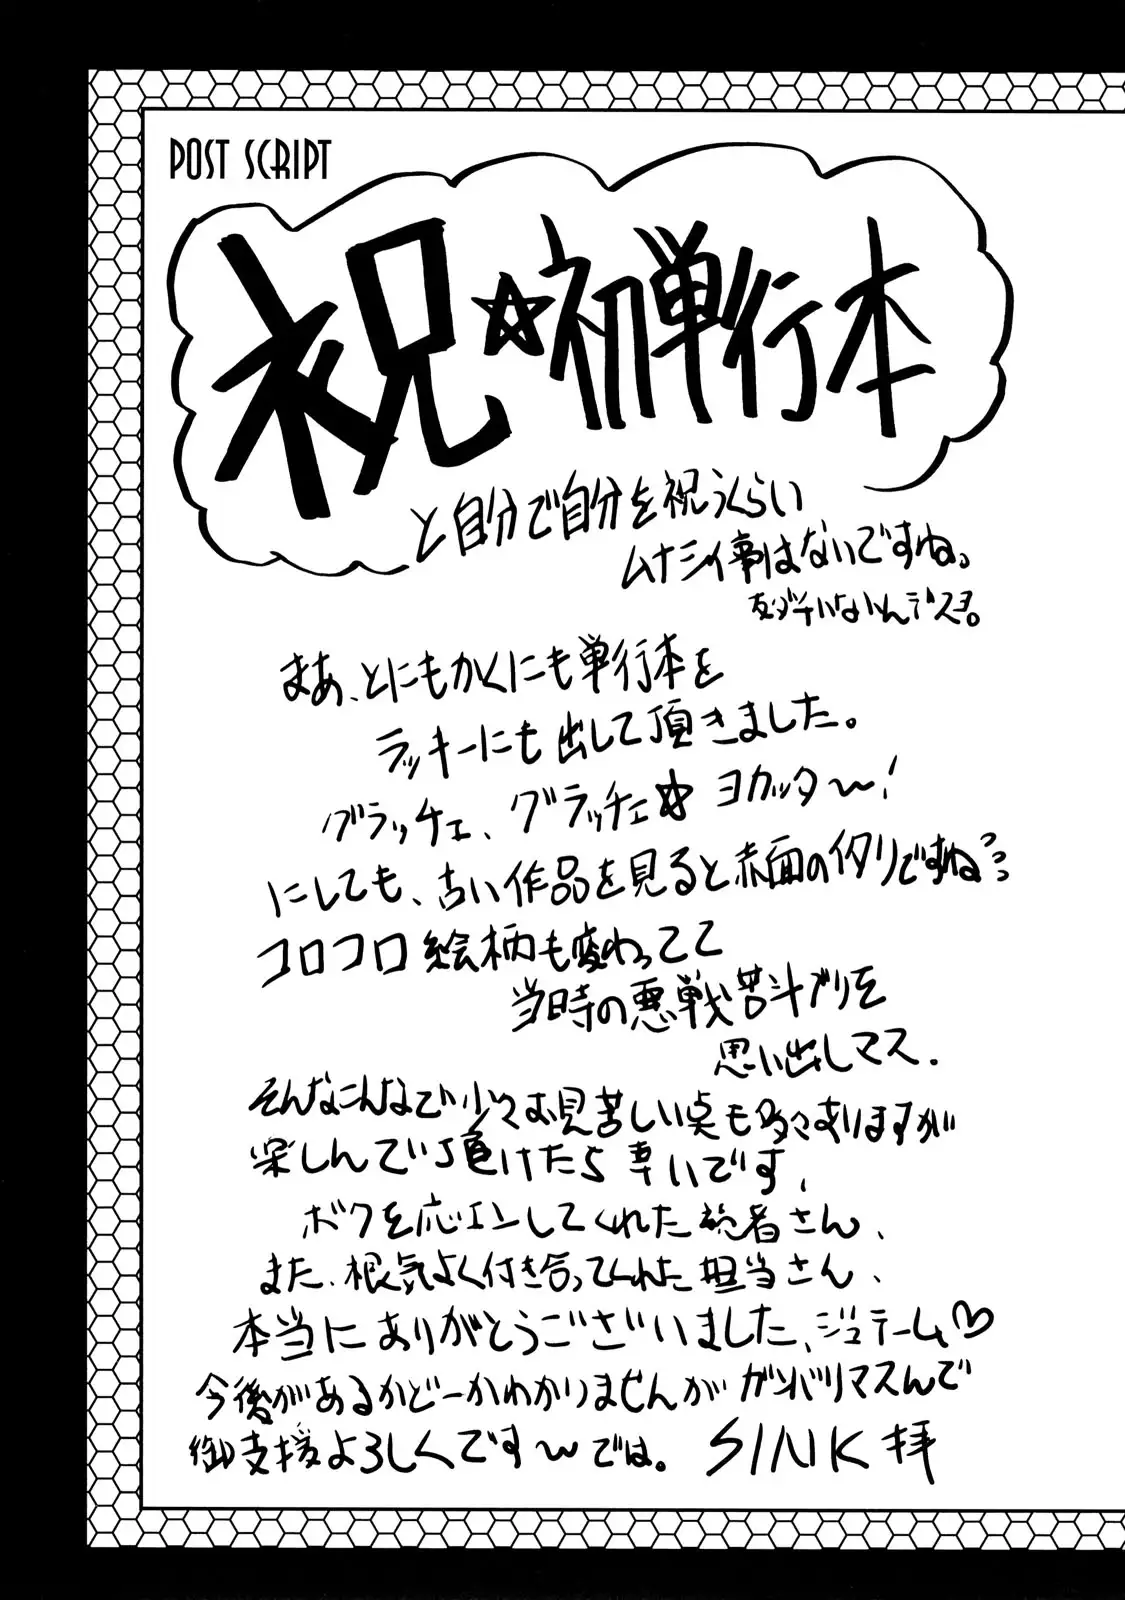 POST SCRIPT
祝☆初単行本
と自分で自分を祝うくらい
ムナシイ事はないですね。
友ダチいないんデスヨ。
まあ、とにもかくにも単行本を
ラッキーにも出して頂きました。
グラッチェ、グラッチェ☆ ヨカッタ〜!
にしても、古い作品を見ると赤面のイタリですね
コロコロ絵柄も変わってて
当時の悪戦苦斗ブリを
思い出しマス.
そんなこんなで少々お見苦しい点も多々ありますが
楽しんで頂けたら幸いです、
ボクを応エンしてくれた読者さん、
また、根気よく付き合ってくれた担当さん、
本当にありがとうございました、ジュテーム♡
今後があるかどーかわかりませんがガンバリマスんで
御支援よろしくです〜では。 SINK拝